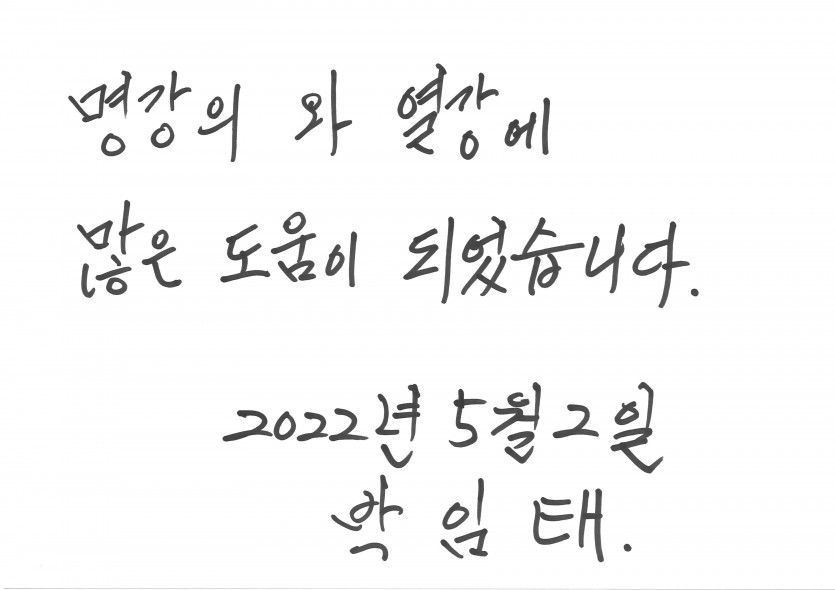 명강의 와 열강에
많은 도움이 되었습니다.
2022년 5월 2일
박 임 태.